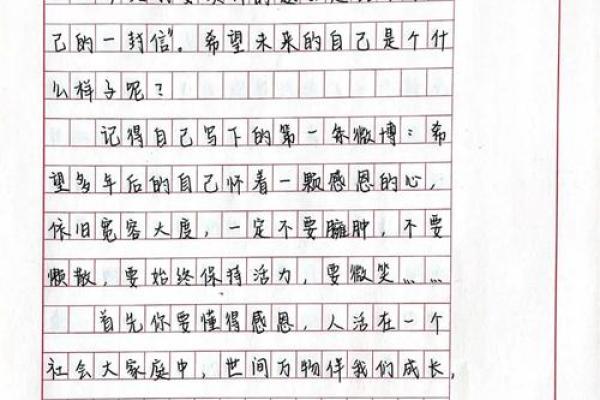 己的一封信"。希望未来的自己是个什
么样子呢？
记得自己写下的第一条微博：希
望多年后的自己怀着一颗感恩的心，
依旧宽容大度，一定不要臃肿，不要
懒散，要始终保持活力，要微笑……
首先你要懂得感恩，人活在一个
社会大家庭中，世间万物伴我们成长，